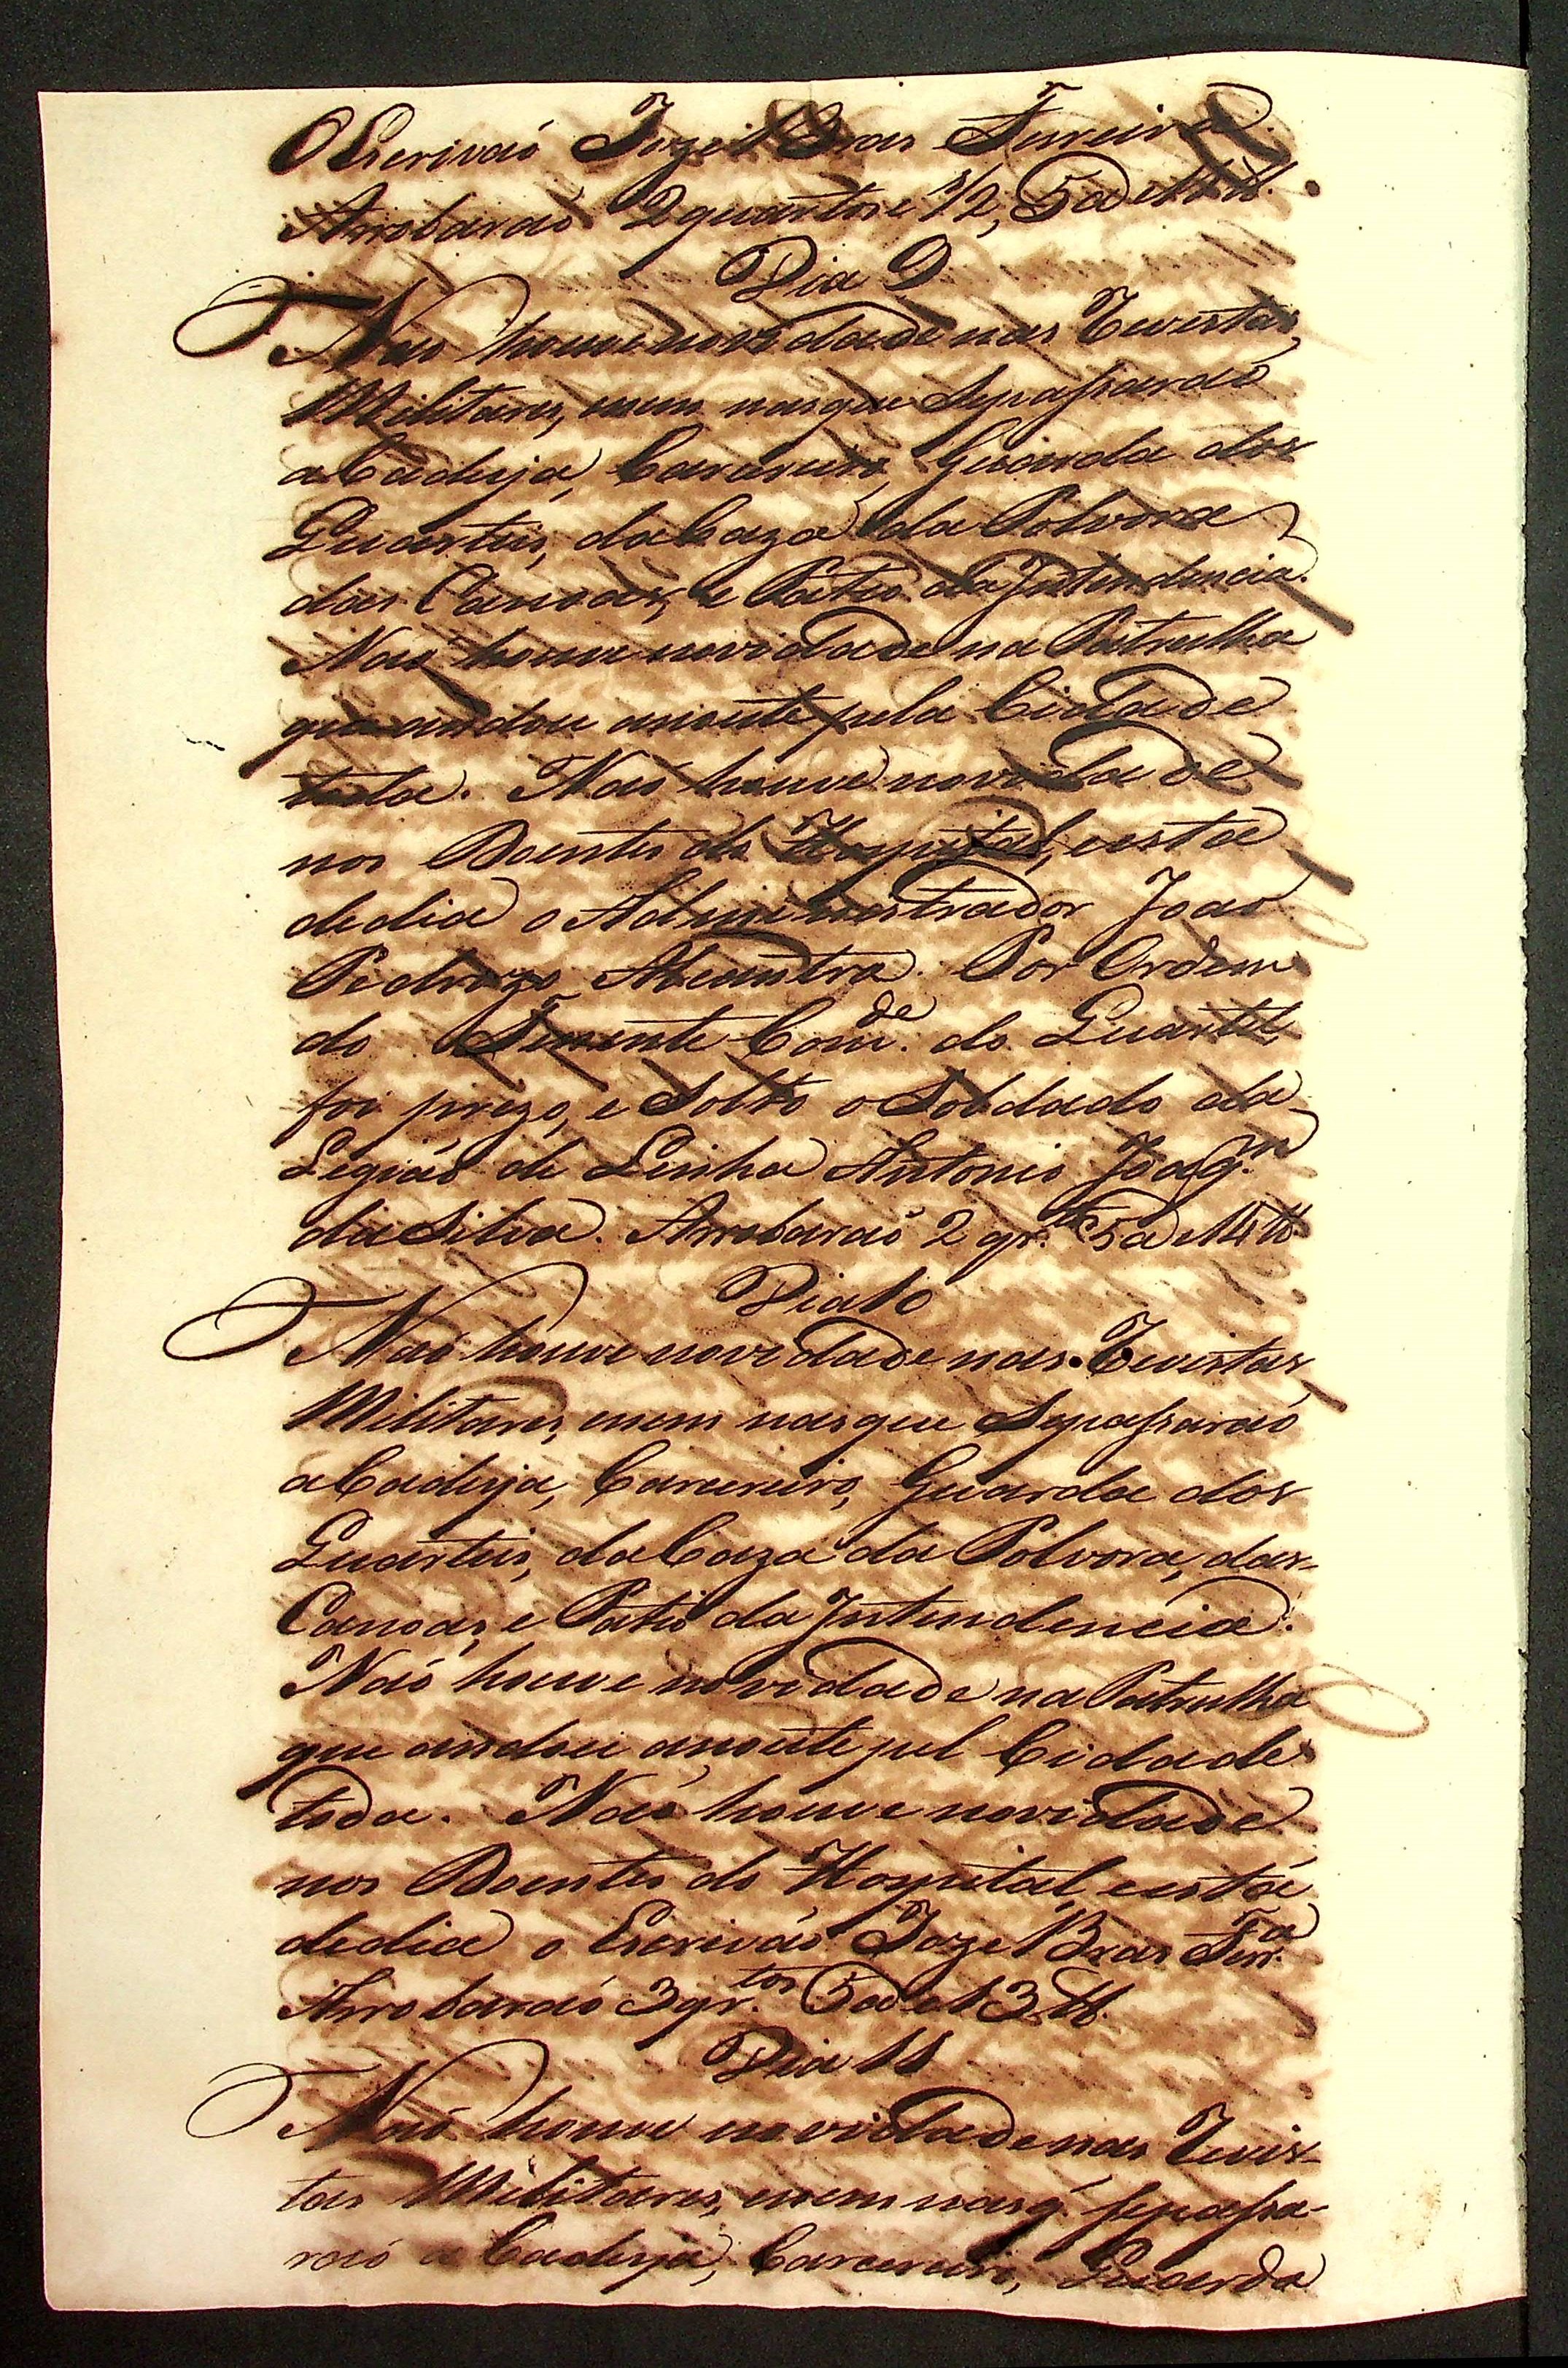 O Escrivaõ Joze Bras Ferreira.
Arrobaraõ 2 quartos e 1/2, 5 @ e
Dia 9
Naõ houve novidade nas Revistas
Militares, enem nasque Sepassaraõ
aCadeya, Carcereiro, Guarda dos
Quarteis, daCaza da Polvora,
das Canoas, e Pateo da Intendencia.
Naõ houve novidade na Patrulha
que andou anoute pela Cidade
toda. Naõ houve novidade
nos Doentes do Hospital, eesta
dedia o Administrador Joaõ
Pedrozo Alcantra. Por Ordem
do Tenente Com.de do Quartel,
foi prezo, e Solto o Soldado da
Legiaõ de Linha Antonio Joaq.m
daSilva. Arrobaraõ 2 qr.tos 5 @ e 14 lb.
Dia 10
Naõ houve novidade nas Revistas
Militares, enem nasque Sepassaraõ
aCadeya, Carcereiro, Guarda dos
Quarteis, daCaza da Polvora, das
Canoas, e Patio da Intendencia.
Naõ houve novidade na Patrulha
que andou anoute pel Cidade
toda. Naõ houve novidade
nos Doentes do Hospital, eestá
dedia o Escrivaõ Joze Bras Ferr.a
Arrobaraõ 3 qr.tos 5 @ e 13 lb.
Dia 11
Naõ houve novidade nas Revis-
tas Militares, enem nasq' sepassa-
raõ a Cadeya, Carcereiro, Guarda